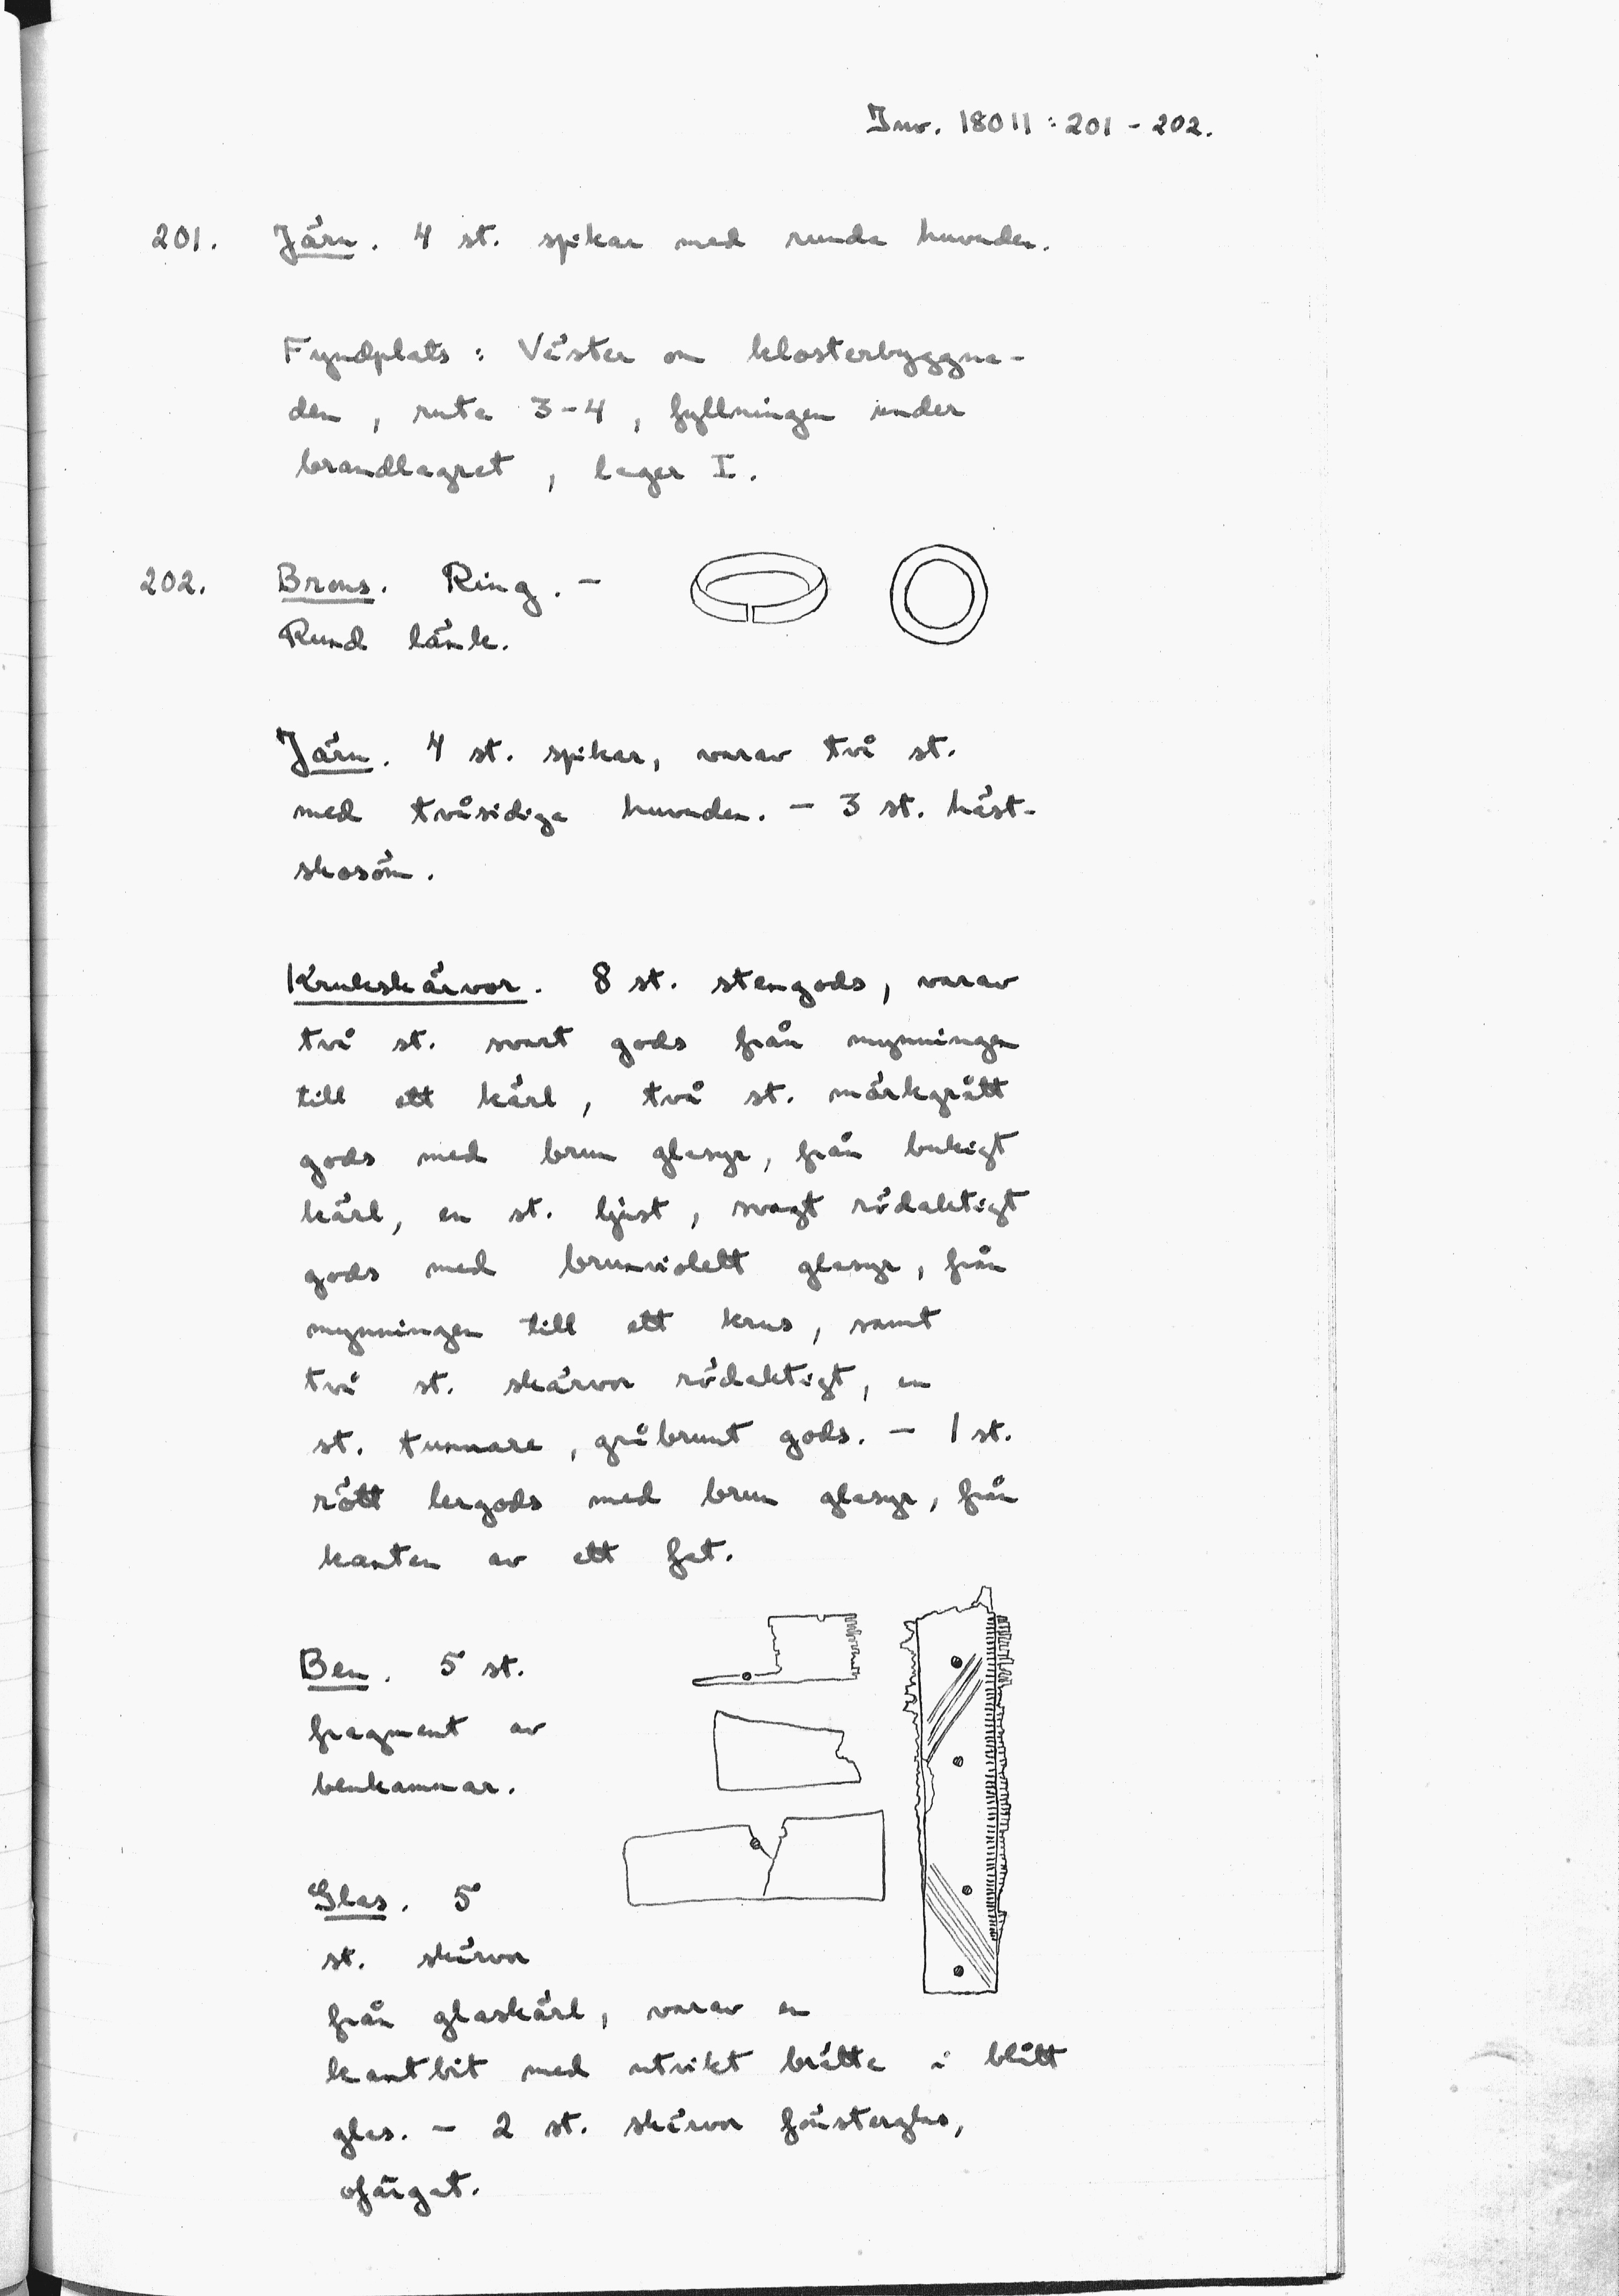 Inv. 18011 : 201 - 202.
201. Järn. 4 st. spikar med runda huvuden.
Fyndplats : Väster om klosterbyggna-
den , ruta 3-4 , fyllningen under
brandlagret , lager I.
202. Brons. Ring. -
Rund länk.
Järn. 4 st. spikar, varav två st.
med tvåsidiga huvuden. - 3 st. häst-
skosöm.
Krukskärvor. 8 st. stengods, varav
två st. svart gods från mynningen
till ett kärl, två st. mörkgrått
gods med brun glasyr, från bukigt
kärl, en st. ljust, svagt rödaktigt
gods med brunviolett glasyr, från
mynningen till ett krus, samt
två st. skärvor rödaktigt, en
st. tunnare, gråbrunt gods. - 1 st.
rött lergods med brun glasyr, från
kanten av ett fat.
Ben. 5 st.
fragment av
benkammar.
Glas. 5
st. skärvor
från glaskärl, varav en
kantbit med utvikt brätte i blått
glas. - 2 st. skärvor fönsterglas,
ofärgat.